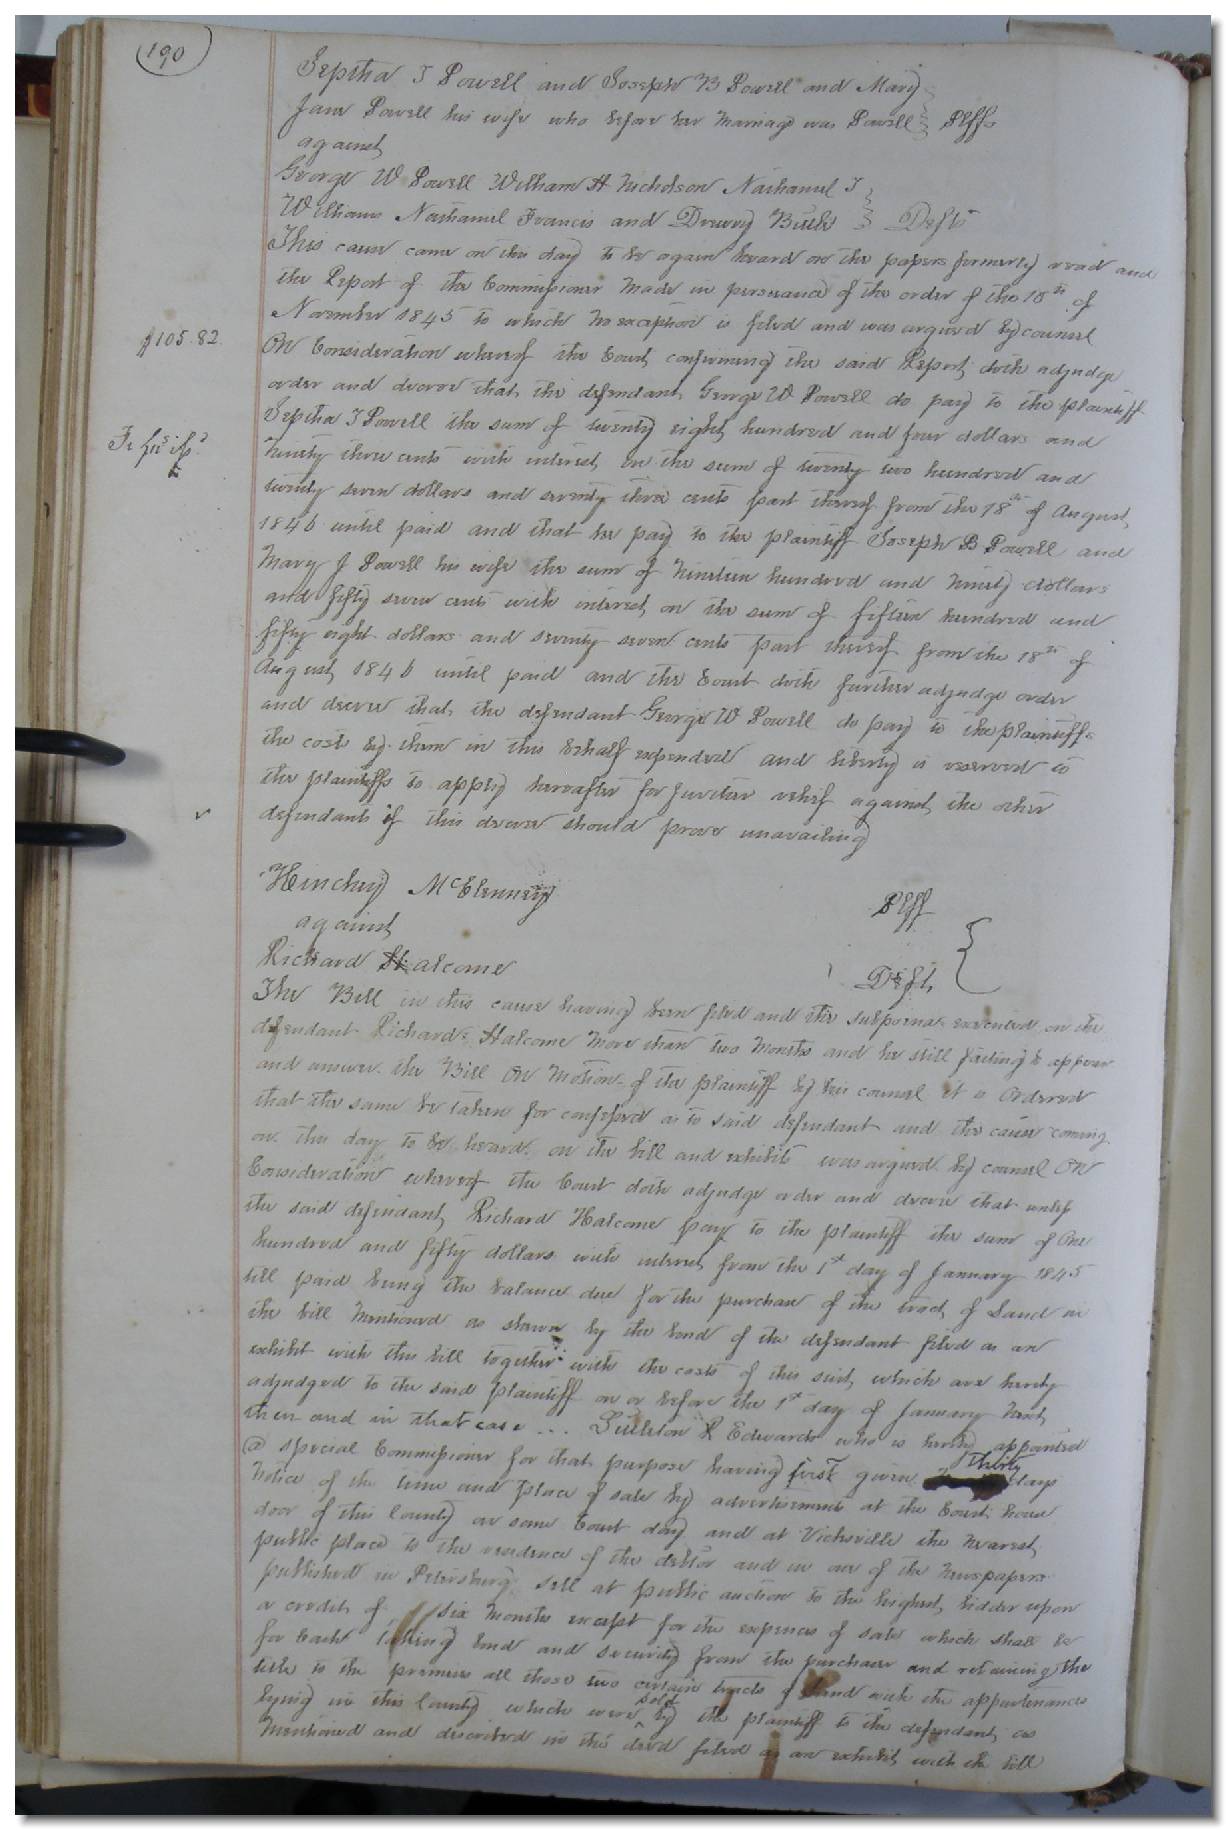 190
Jeptha J Powell and Joseph B Powell and Mary
Jane Powell his wife who before her Marriage was Powell Plffs
against
George W Powell William H Nicholson Nathaniel J
Williams Nathaniel Francis and Drewry Deft
This cause came on this day to be again heard on the papers formerly read and
the Report of the Commissioner Made in persuance of the order of the 18th of
November 1845 to which no exception is filed and was argued by counsel
On Consideration whereof the Court confirming the said Report doth adjudge
$105.82
order and decree that the defendant George W Powell do pay to the plaintiff
Jeptha J Powell the sum of twenty eight hundred and four dollars and
Ninety three cents with interest on the sum of twenty two hundred and
twenty seven dollars and seventy three cents part thereof from the 18th of August
1846 until paid and that he pay to the plaintiff Joseph B Powell and
Mary J Powell his wife the sum of Nineteen hundred and Ninety dollars
and fifty seven cents with interest on the sum of fifteen hundred and
fifty eight dollars and seventy seven cents part thereof from the 18th of
August 1846 until paid and the Court doth further adjudge order
and decree that the defendant George W Powell do pay to the plaintiffs
the costs by them in this behalf expended and liberty is reserved to
the plaintiffs to apply hereafter for further relief against the other
defendants if this decree should prove unavailing
Hinchey McElenney Plff
against
Richard Halcome Deft
The Bill in this cause having been filed and the subpoena executed on the
defendant Richard Halcome More than two Months and he still failing to appear
and answer the Bill On Motion of the plaintiff by his counsel it is Ordered
that the same be taken for confessed as to said defendant and the cause coming
on this day to be heard on the bill and exhibits was argued by counsel On
Consideration whereof the Court doth adjudge order and decree that unless
the said defendant Richard Halcome pay to the plaintiff the sum of One
hundred and fifty dollars with interest from the 1st day of January 1845
till paid being the balance due for the purchase of the tract of Land in
the bill Mentioned as shown by the bond of the defendant filed as an
exhibit with the bill together with the costs of this suit which are hereby
adjudged to the said plaintiff on or before the 1st day of January Next
then and in that case ... Littleton R Edwards who is hereby appointed
a special Commissioner for that purpose having first given Thirty days
Notice of the time and place of sale by advertisement at the Court house
door of this County on some Court day and at Vicksville the Nearest
public place to the residence of the debtor and in one of the Newspapers
published in Petersburg sell at public auction to the highest bidder upon
a credit of six Months except for the expences of sale which shall be
for Cash taking bond and security from the purchaser and retaining the
title to the premises all those two certain tracts of Land with the appurtenances
lying in this County which were sold by the plaintiff to the defendant as
Mentioned and described in the deed filed as an exhibit with the bill